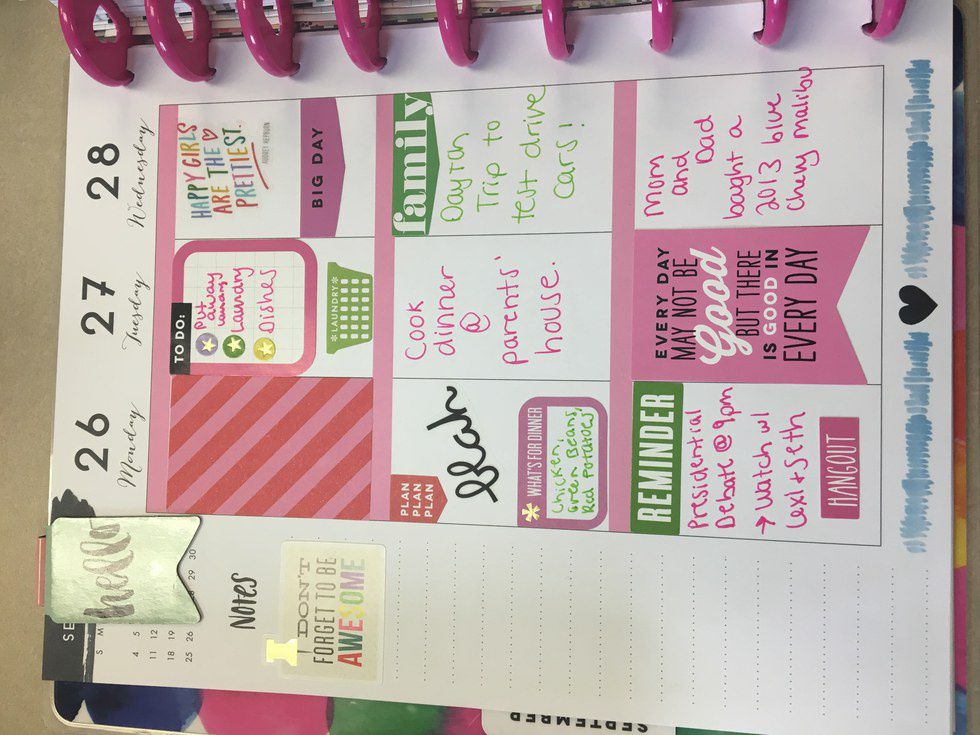 SE
S M
4 5
11 12
18 19
25 26
29 30
hello
Notes
DON'T
FORGET TO BE
AWESOME
26
Monday
PLAN
PLAN
PLAN
blah
WHAT'S FOR DINNER
Chicken,
Green Beans,
Red Potatoes
REMINDER
Presidential
Debate @ 9pm
→ Watch w/
Lexi + Seth
HANGOUT
27
Tuesday
TO DO:
put
away
laundry
Laundry
Dishes
*LAUNDRY*
Cook
dinner
@
parents'
house.
EVERY DAY
MAY NOT BE
Good
BUT THERE
IS GOOD IN
EVERY DAY
28
Wednesday
HAPPY GIRLS
ARE THE
PRETTIEST.
AUDREY HEPBURN
BIG DAY
family
Dayton
Trip to
test drive
Cars!
Mom
and
Dad
bought a
2013 blue
chevy malibu
SEPTEMBER